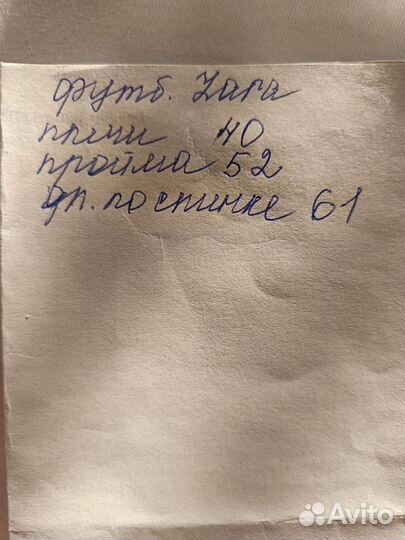 футб. Zara
плечи 40
пройма 52
дл. по спинке 61
Avito